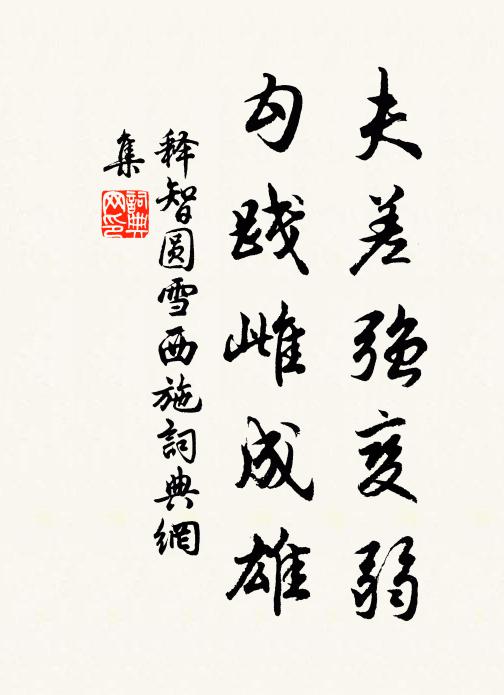 夫差強变弱
勾践雌成雄
释智圆雪西施詞典網
集
詞典
网印